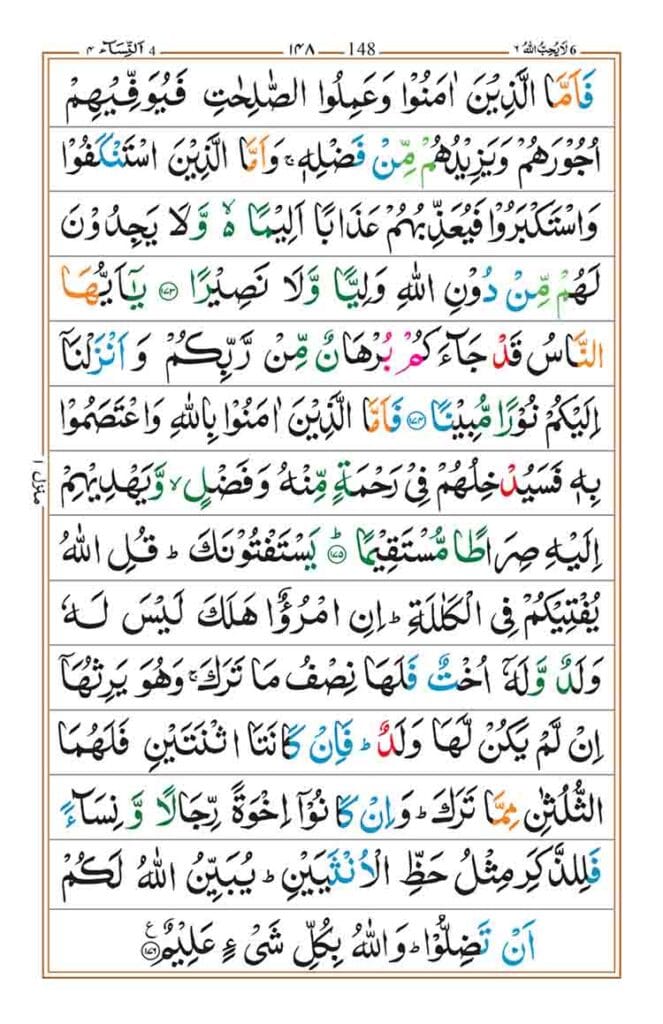 6 لَا يُحِبُّ اللّٰهُ ٦ 148 ١٤٨ 4 اَلنِّسَآء ٤
فَاَمَّا الَّذِيْنَ اٰمَنُوْا وَعَمِلُوا الصّٰلِحٰتِ فَيُوَفِّيْهِمْ
اُجُوْرَهُمْ وَيَزِيْدُهُمْ مِّنْ فَضْلِهٖ ۚ وَاَمَّا الَّذِيْنَ اسْتَنْكَفُوْا
وَاسْتَكْبَرُوْا فَيُعَذِّبُهُمْ عَذَابًا اَلِيْمًا ۵ وَّلَا يَجِدُوْنَ
لَهُمْ مِّنْ دُوْنِ اللّٰهِ وَلِيًّا وَّلَا نَصِيْرًا ﴿١٧٣﴾ يٰۤاَيُّهَا
النَّاسُ قَدْ جَآءَكُمْ بُرْهَانٌ مِّنْ رَّبِّكُمْ وَاَنْزَلْنَاۤ
اِلَيْكُمْ نُوْرًا مُّبِيْنًا ﴿١٧٤﴾ فَاَمَّا الَّذِيْنَ اٰمَنُوْا بِاللّٰهِ وَاعْتَصَمُوْا
بِهٖ فَسَيُدْخِلُهُمْ فِيْ رَحْمَةٍ مِّنْهُ وَفَضْلٍ ۙ وَّيَهْدِيْهِمْ
اِلَيْهِ صِرَاطًا مُّسْتَقِيْمًا ﴿١٧٥﴾ ؕ يَسْتَفْتُوْنَكَ ؕ قُلِ اللّٰهُ
يُفْتِيْكُمْ فِي الْكَلٰلَةِ ؕ اِنِ امْرُؤٌا هَلَكَ لَيْسَ لَهٗ
وَلَدٌ وَّلَهٗۤ اُخْتٌ فَلَهَا نِصْفُ مَا تَرَكَ ۚ وَهُوَ يَرِثُهَاۤ
اِنْ لَّمْ يَكُنْ لَّهَا وَلَدٌ ؕ فَاِنْ كَانَتَا اثْنَتَيْنِ فَلَهُمَا
الثُّلُثٰنِ مِمَّا تَرَكَ ؕ وَاِنْ كَانُوْۤا اِخْوَةً رِّجَالًا وَّنِسَآءً
فَلِلذَّكَرِ مِثْلُ حَظِّ الْاُنْثَيَيْنِ ؕ يُبَيِّنُ اللّٰهُ لَكُمْ
اَنْ تَضِلُّوْا ؕ وَاللّٰهُ بِكُلِّ شَيْءٍ عَلِيْمٌ ﴿١٧٦﴾ ع
منزل ١